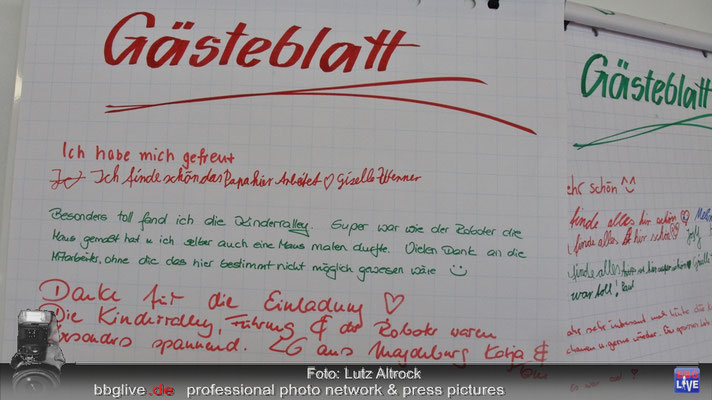 Gästeblatt
Ich habe mich gefreut
Ich finde schön das Papa hier Arbeitet ♡ Giselle
Besonders toll fand ich die Kinderralley. Super war wie der Roboter die
Maus gemalt hat u. ich selber auch eine Maus malen durfte. Vielen Dank an die
Mitarbeiter, ohne die das hier bestimmt nicht möglich gewesen wäre ☺
Danke für die Einladung ♡
Die Kinderralley, Führung & der Roboter waren
besonders spannend. LG aus Magdeburg Katja &
Tom
Gästeblatt
ehr schön ^^
finde alles hier schön
finde alles hier schön
finde alles
war toll, Paul
Foto: Lutz Altrock
bbglive.de professional photo network & press pictures
BBG
LIVE